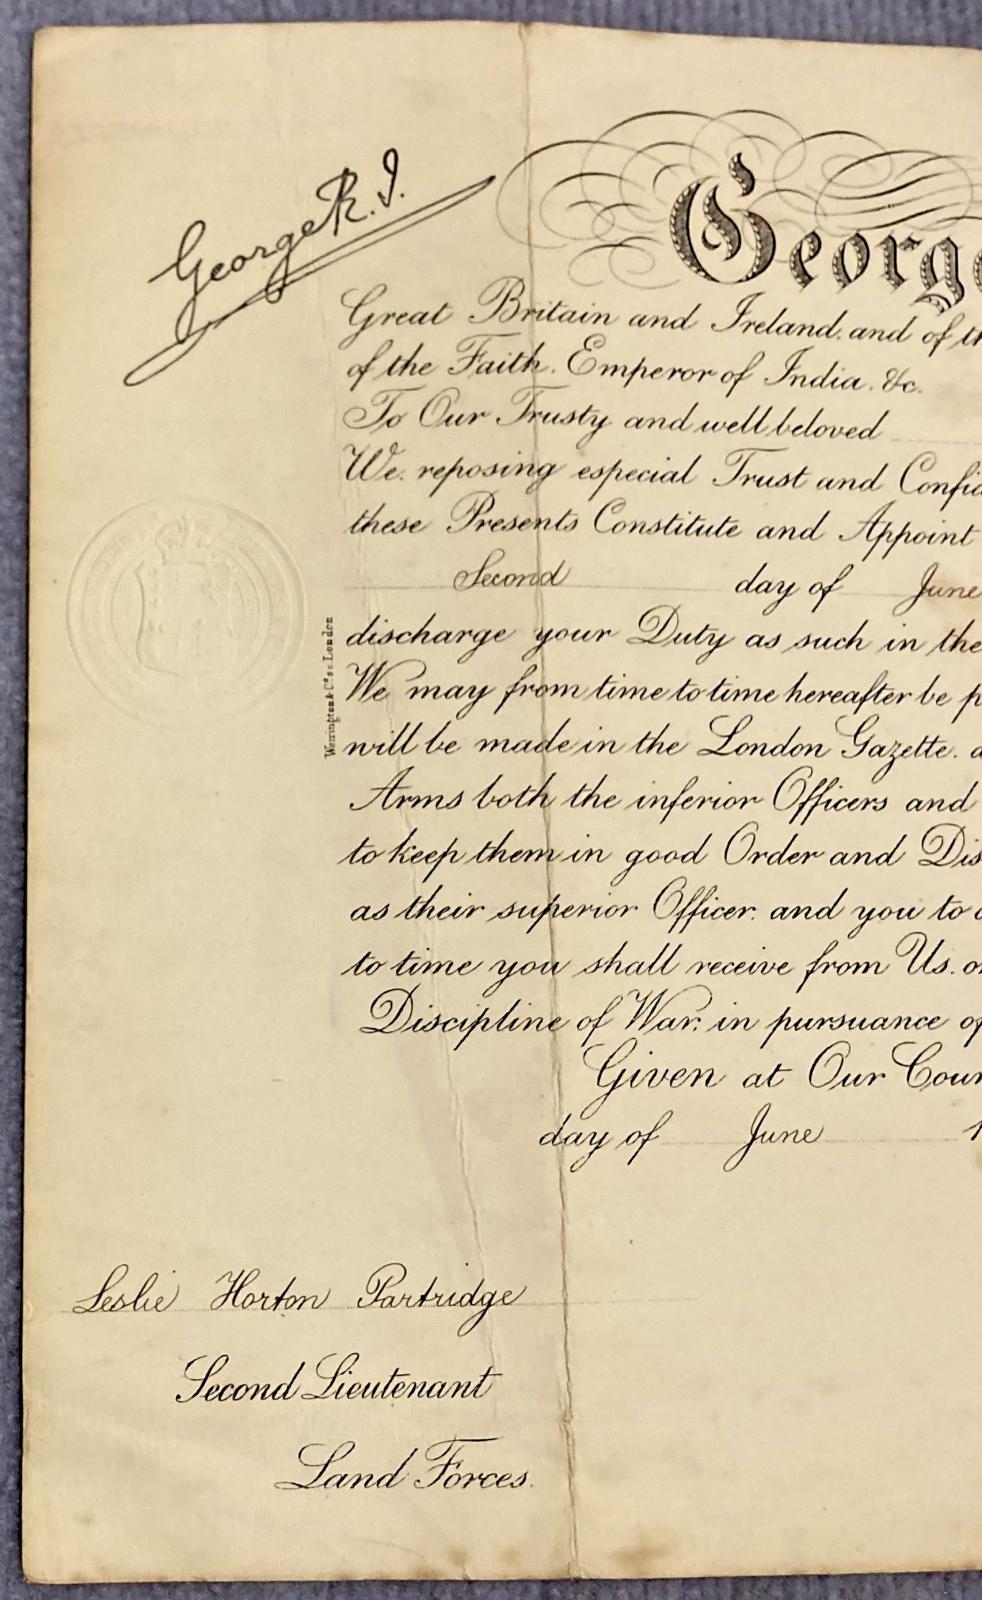 George R.I.
George
Great Britain and Ireland, and of
of the Faith, Emperor of India, &c.
To Our Trusty and well beloved
We, reposing especial Trust and
these Presents Constitute and Appoint
Second day of June
discharge your Duty as such in the
We may from time to time hereafter be
will be made in the London Gazette,
Arms both the inferior Officers and
to keep them in good Order and
as their superior Officer, and you to
to time you shall receive from Us, or
Discipline of War, in pursuance of
Given at Our
day of June 1
Warrington & Co. sc London
Leslie Horton Partridge
Second Lieutenant
Land Forces.